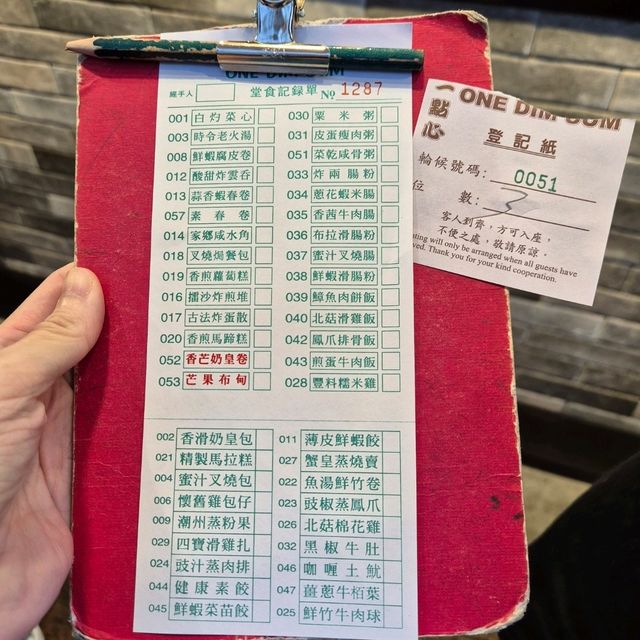 ONE DIM SUM
經手人
堂食記錄單 No 1287
001 白灼菜心
003 時令老火湯
008 鮮蝦腐皮卷
012 酸甜炸雲吞
013 蒜香蝦春卷
057 素春卷
014 家鄉咸水角
018 叉燒焗餐包
019 香煎蘿蔔糕
016 擂沙炸煎堆
017 古法炸蛋散
020 香煎馬蹄糕
052 香芒奶皇卷
053 芒果布甸
030 粟米粥
031 皮蛋瘦肉粥
051 菜乾咸骨粥
033 炸兩腸粉
034 蔥花蝦米腸
035 香茜牛肉腸
036 布拉滑腸粉
037 蜜汁叉燒腸
038 鮮蝦滑腸粉
039 鱆魚肉餅飯
040 北菇滑雞飯
042 鳳爪排骨飯
043 煎蛋牛肉飯
028 豐料糯米雞
002 香滑奶皇包
021 精製馬拉糕
004 蜜汁叉燒包
006 懷舊雞包仔
009 潮州蒸粉果
029 四寶滑雞扎
024 豉汁蒸肉排
044 健康素餃
045 鮮蝦菜苗餃
011 薄皮鮮蝦餃
027 蟹皇蒸燒賣
022 魚湯鮮竹卷
023 豉椒蒸鳳爪
026 北菇棉花雞
032 黑椒牛肚
046 咖喱土魷
047 薑蔥牛栢葉
025 鮮竹牛肉球
一點心
ONE DIM SUM
登記紙
輪候號碼: 0051
位數: 3
客人到齊，方可入座，
不便之處，敬請原諒。
ting will only be arranged when all guests have
ved. Thank you for your kind cooperation.